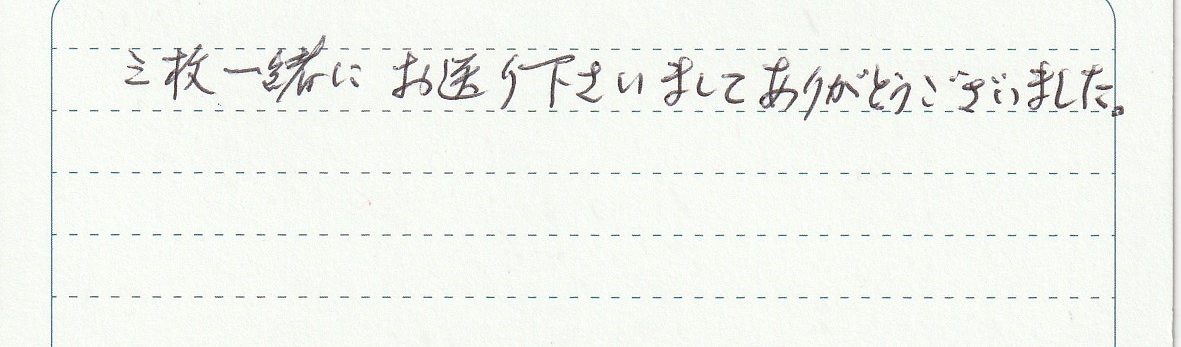 三枚一緒に お送り下さいましてありがとうございました。